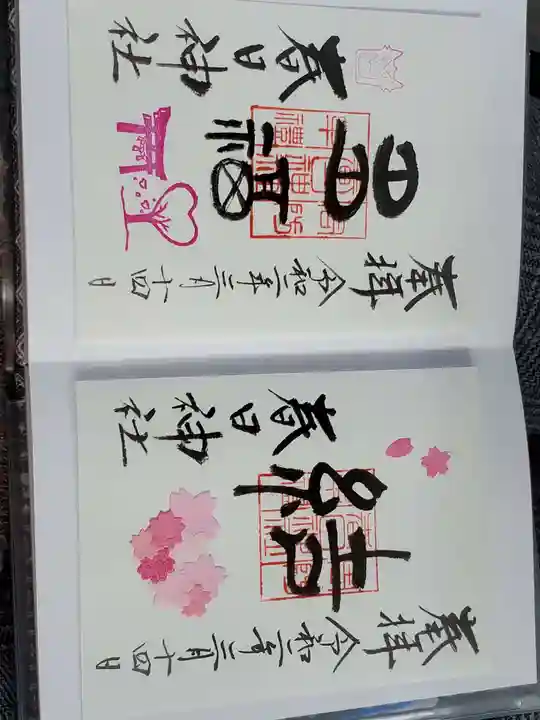 奉拝
春日神社
福
令和二年三月十四日
奉拝
春日神社
結
令和二年三月十四日